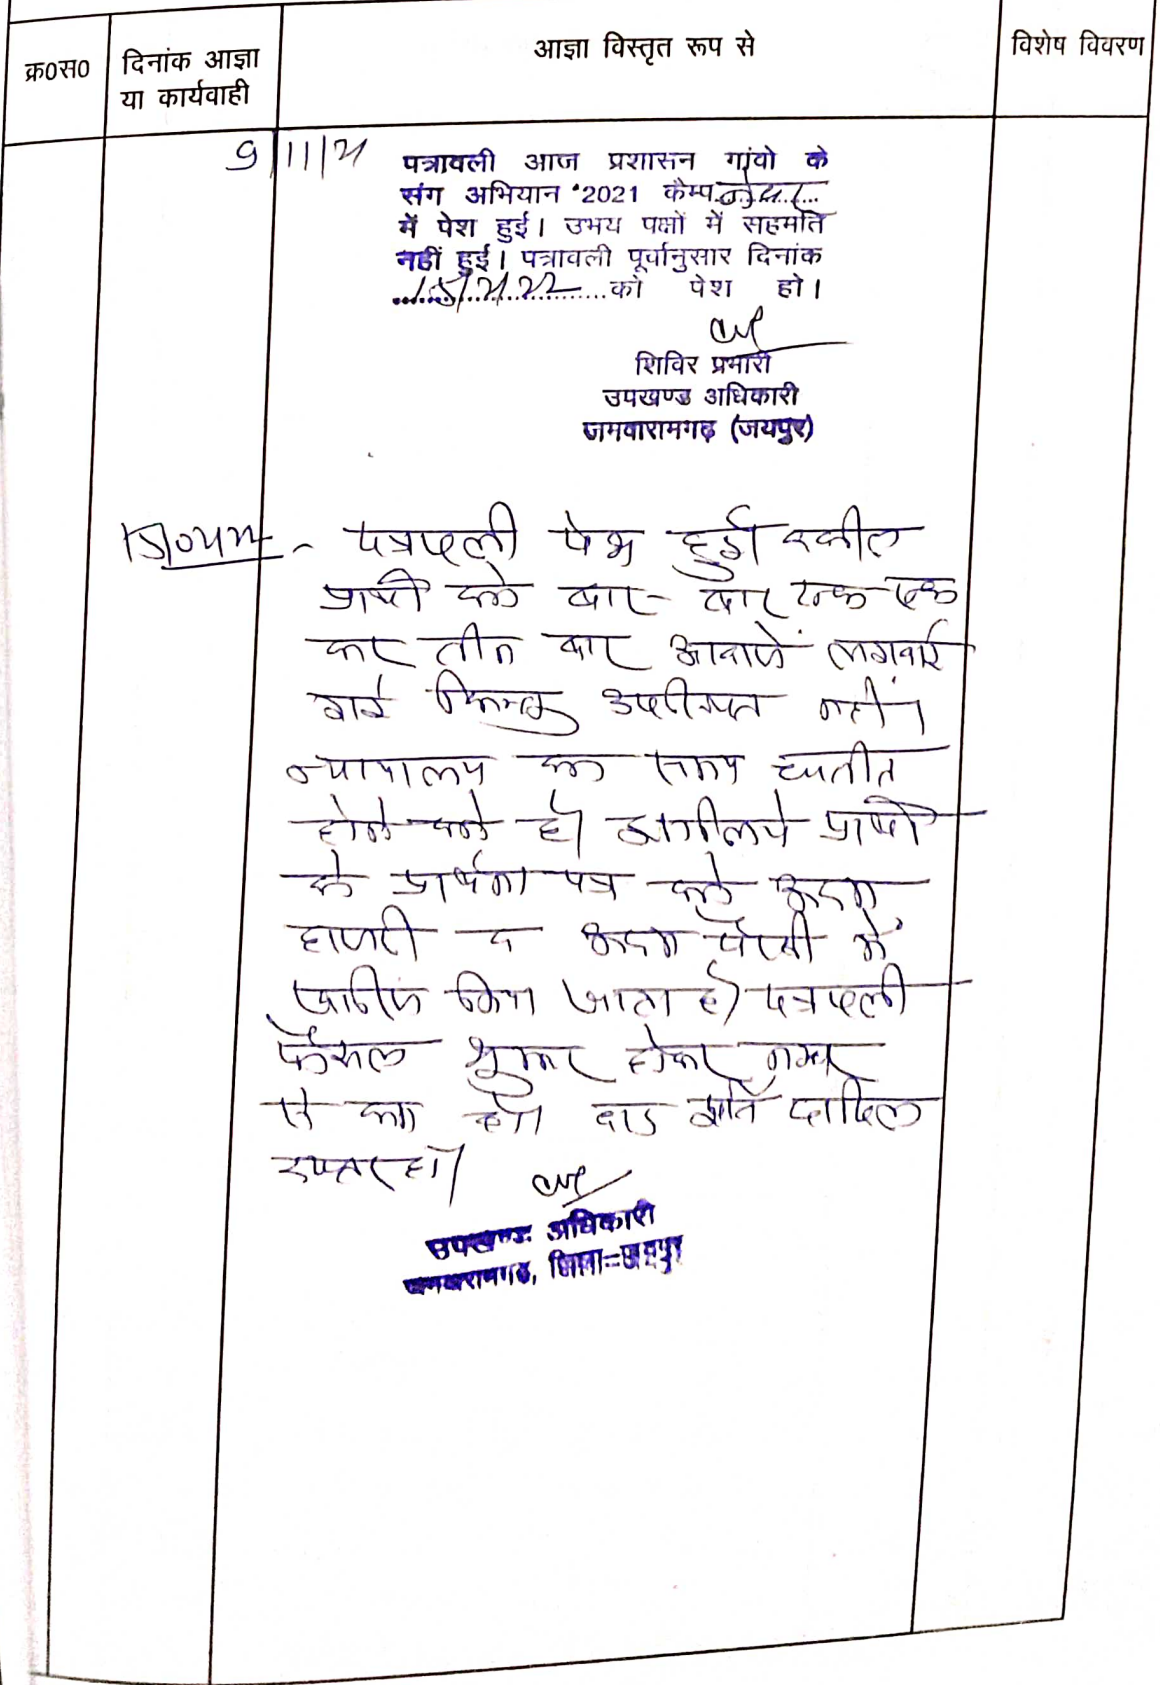 क्र0स0 दिनांक आज्ञा या कार्यवाही आज्ञा विस्तृत रूप से विशेष विवरण
9/11/21
पत्रावली आज प्रशासन गांवो के
संग अभियान '2021 कैम्प
में पेश हुई। उभय पक्षों में सहमति
नहीं हुई। पत्रावली पूर्वानुसार दिनांक
15/2/22 को पेश हो।
शिविर प्रभारी
उपखण्ड अधिकारी
जमवारामगढ़ (जयपुर)
पत्रावली पेश हुई वकील
प्रार्थी को बार- बार एक-एक
कर तीन बार आवाजें लगवाई
गई किन्तु उपस्थित नहीं।
न्यायालय का समय व्यतीत
होने को है। इसलिये प्रार्थी
के प्रार्थना पत्र को अदम
हाजरी व अदम पैरवी में
खारीज किया जाता है। पत्रावली
फैसल शुमार होकर नम्बर
से कम हो। बाद दाखिल
दफ्तर हो।
उपखण्ड अधिकारी
जमवारामगढ, जिला-जयपुर